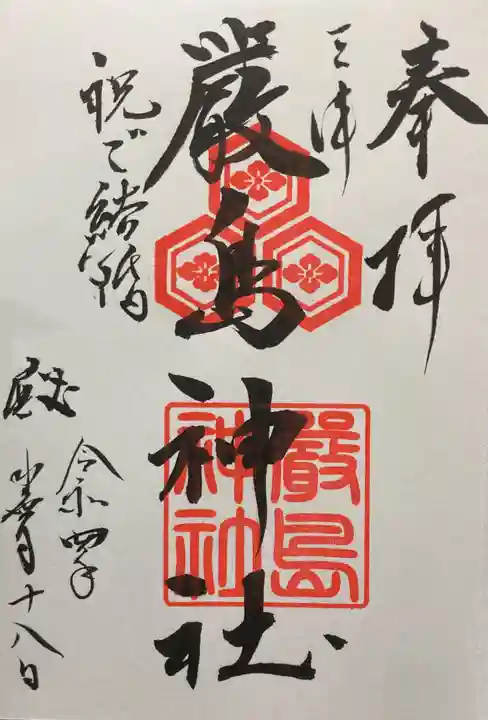 奉拝
三津
嚴島神社
嚴島
神社
祝ご結婚
令和四年
月十八日
殿